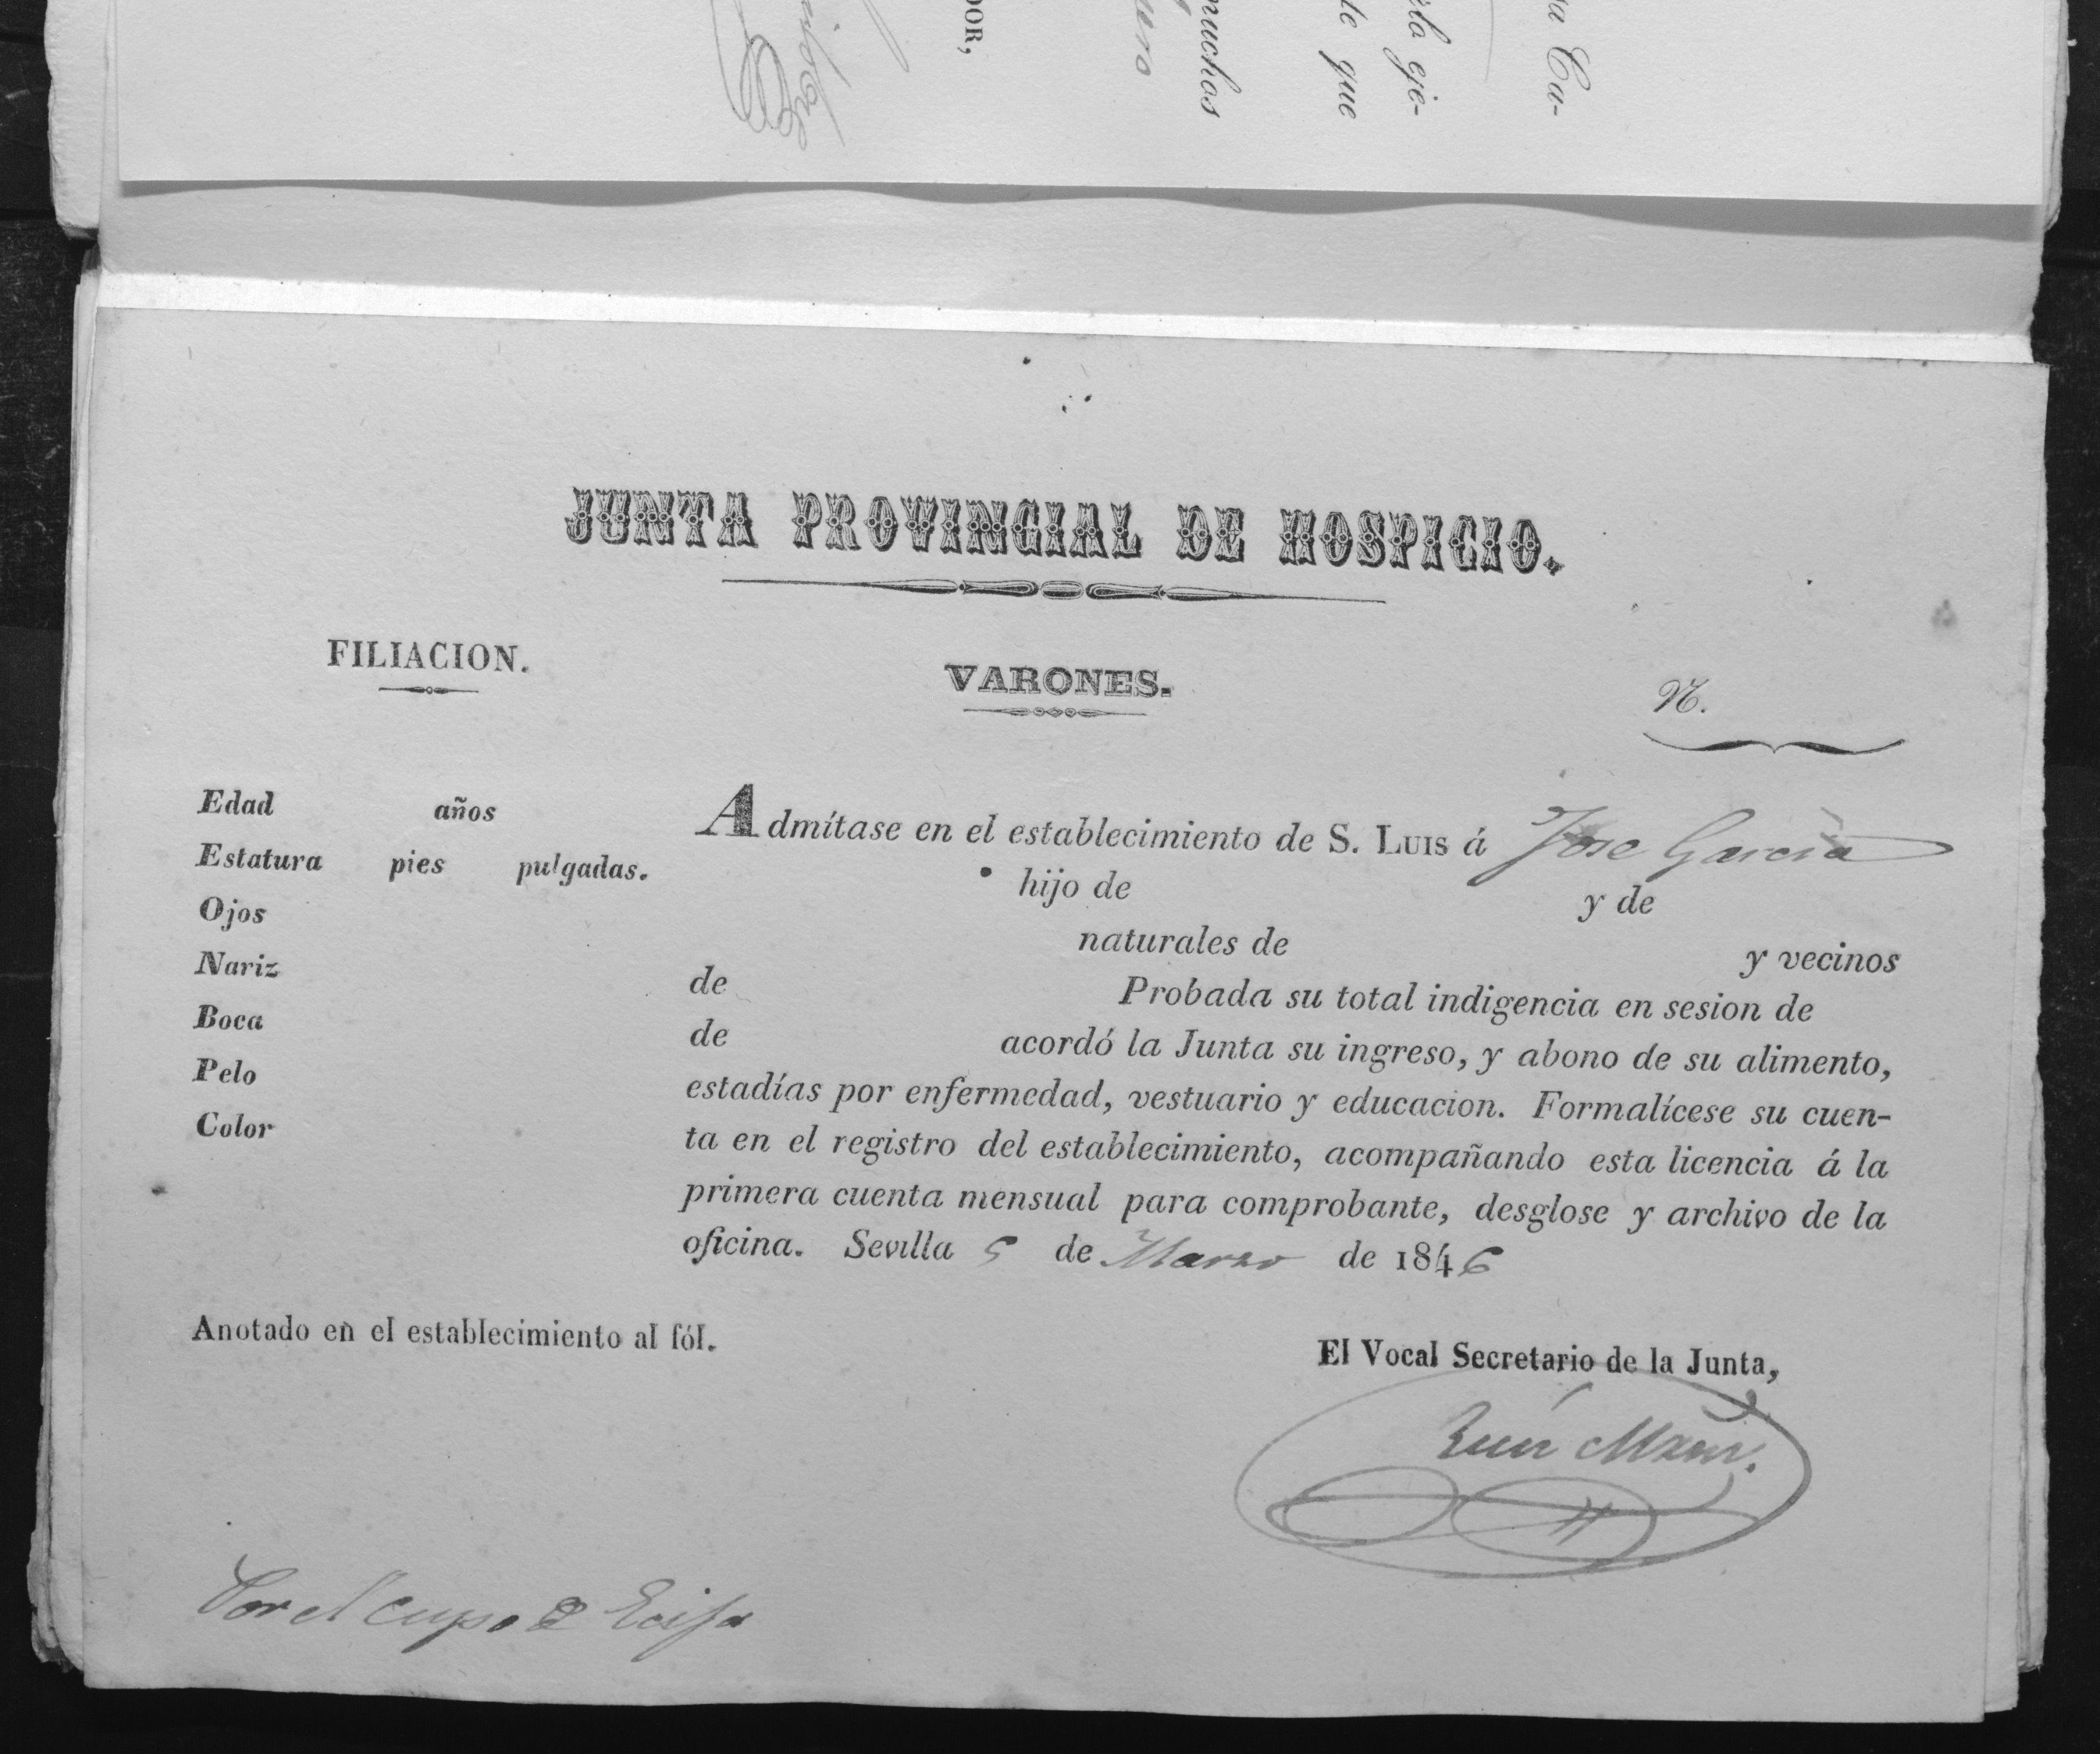 DOR,
muchos
le que
rla eje-
ra Ca-
JUNTA PROVINCIAL DE HOSPICIO.
FILIACION.
VARONES.
N.
Edad años
Estatura pies pulgadas.
Ojos
Nariz
Boca
Pelo
Color
Admítase en el establecimiento de S. LUIS á Jose Garcia
hijo de y de
naturales de y vecinos
de Probada su total indigencia en sesion de
de acordó la Junta su ingreso, y abono de su alimento,
estadías por enfermedad, vestuario y educacion. Formalícese su cuen-
ta en el registro del establecimiento, acompañando esta licencia á la
primera cuenta mensual para comprobante, desglose y archivo de la
oficina. Sevilla 5 de Marzo de 1846
Anotado en el establecimiento al fól.
El Vocal Secretario de la Junta,
Por el cupo de Ecija